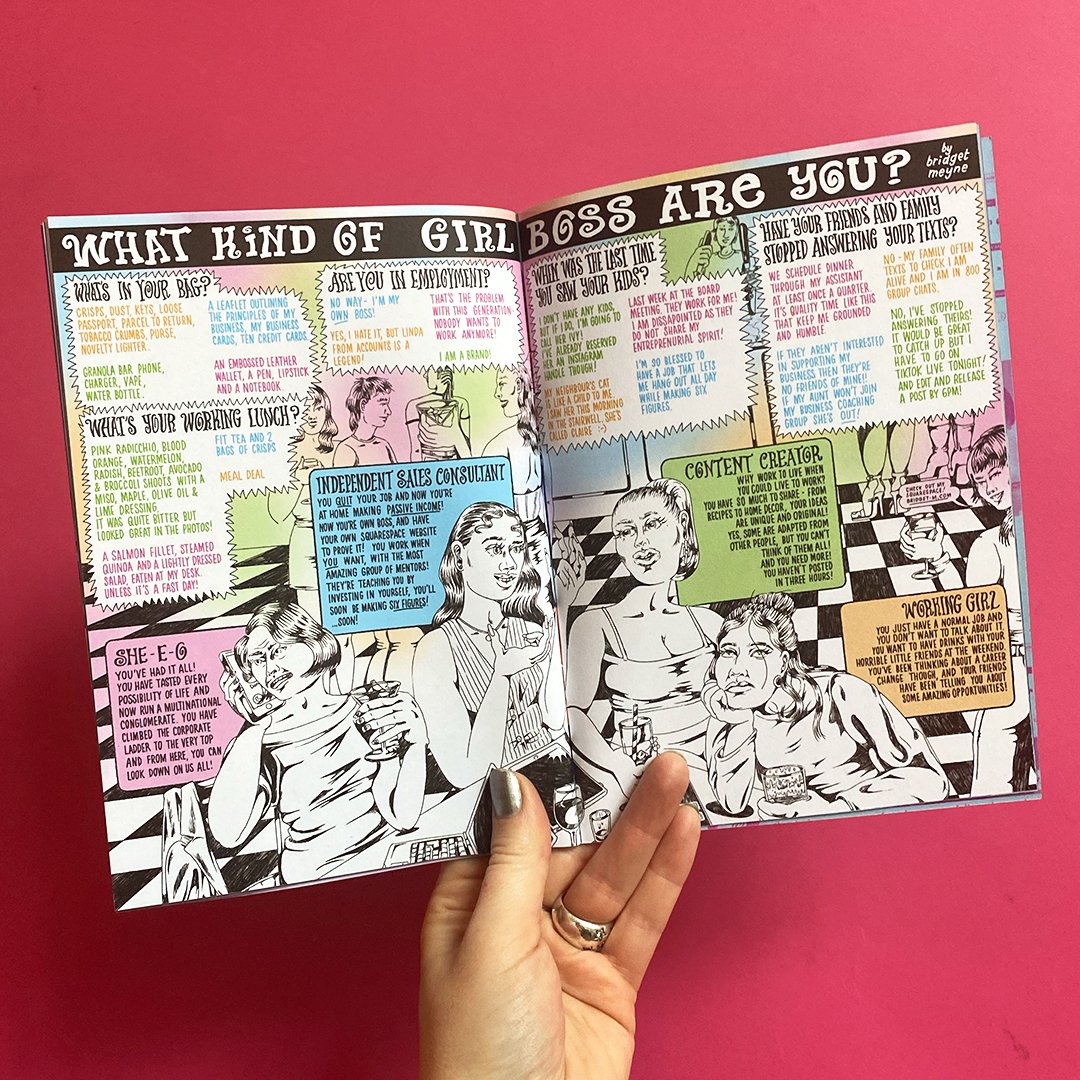 WHAT KIND OF GIRL BOSS ARE YOU?
by
bridget
meyne
WHAT'S IN YOUR BAG?
CRISPS, DUST, KEYS, LOOSE
PASSPORT, PARCEL TO RETURN,
TOBACCO CRUMBS, PURSE,
NOVELTY LIGHTER.
A LEAFLET OUTLINING
THE PRINCIPLES OF MY
BUSINESS, MY BUSINESS
CARDS, TEN CREDIT CARDS.
GRANOLA BAR, PHONE,
CHARGER, VAPE,
WATER BOTTLE.
AN EMBOSSED LEATHER
WALLET, A PEN, LIPSTICK
AND A NOTEBOOK.
ARE YOU IN EMPLOYMENT?
NO WAY - I'M MY
OWN BOSS!
THAT'S THE PROBLEM
WITH THIS GENERATION-
NOBODY WANTS TO
WORK ANYMORE!
YES, I HATE IT, BUT LINDA
FROM ACCOUNTS IS A
LEGEND!
I AM A BRAND!
WHAT'S YOUR WORKING LUNCH?
PINK RADICCHIO, BLOOD
ORANGE, WATERMELON,
RADISH, BEETROOT, AVOCADO
& BROCCOLI SHOOTS WITH A
MISO, MAPLE, OLIVE OIL &
LIME DRESSING.
IT WAS QUITE BITTER BUT
LOOKED GREAT IN THE PHOTOS!
FIT TEA AND 2
BAGS OF CRISPS
MEAL DEAL
A SALMON FILLET, STEAMED
QUINOA AND A LIGHTLY DRESSED
SALAD, EATEN AT MY DESK.
UNLESS IT'S A FAST DAY!
WHEN WAS THE LAST TIME
YOU SAW YOUR KIDS?
DON'T HAVE ANY KIDS,
BUT IF I DO, I'M GOING TO
CALL HER IVY.
I'VE ALREADY RESERVED
HER AN INSTAGRAM
HANDLE THOUGH!
LAST WEEK AT THE BOARD
MEETING. THEY WORK FOR ME!
I AM DISSAPOINTED AS THEY
DO NOT SHARE MY
ENTREPRENURIAL SPIRIT!
MY NEIGHBOUR'S CAT
IS LIKE A CHILD TO ME.
I SAW HER THIS MORNING
IN THE STAIRWELL, SHE'S
CALLED CLAIRE :-)
I'M SO BLESSED TO
HAVE A JOB THAT LETS
ME HANG OUT ALL DAY
WHILE MAKING SIX
FIGURES.
HAVE YOUR FRIENDS AND FAMILY
STOPPED ANSWERING YOUR TEXTS?
WE SCHEDULE DINNER
THROUGH MY ASSISTANT
AT LEAST ONCE A QUARTER.
IT'S QUALITY TIME LIKE THIS
THAT KEEP ME GROUNDED
AND HUMBLE.
NO - MY FAMILY OFTEN
TEXTS TO CHECK I AM
ALIVE AND I AM IN 800
GROUP CHATS.
IF THEY AREN'T INTERESTED
IN SUPPORTING MY
BUSINESS THEN THEY'RE
NO FRIENDS OF MINE!!
IF MY AUNT WON'T JOIN
MY BUSINESS COACHING
GROUP SHE'S OUT!
NO, I'VE STOPPED
ANSWERING THEIRS!
IT WOULD BE GREAT
TO CATCH UP BUT I
HAVE TO GO ON
TIKTOK LIVE TONIGHT!
AND EDIT AND RELEASE
A POST BY 6PM!
INDEPENDENT SALES CONSULTANT
YOU QUIT YOUR JOB AND NOW YOU'RE
AT HOME MAKING PASSIVE INCOME!
NOW YOU'RE OWN BOSS, AND HAVE
YOUR OWN SQUARESPACE WEBSITE
TO PROVE IT! YOU WORK WHEN
YOU WANT, WITH THE MOST
AMAZING GROUP OF MENTORS!
THEY'RE TEACHING YOU BY
INVESTING IN YOURSELF, YOU'LL
SOON BE MAKING SIX FIGURES!
...SOON!
CONTENT CREATOR
WHY WORK TO LIVE WHEN
YOU COULD LIVE TO WORK?
YOU HAVE SO MUCH TO SHARE - FROM
RECIPES TO HOME DECOR, YOUR IDEAS
ARE UNIQUE AND ORIGINAL!
YES, SOME ARE ADAPTED FROM
OTHER PEOPLE, BUT YOU CAN'T
THINK OF THEM ALL!
AND YOU NEED MORE!
YOU HAVEN'T POSTED
IN THREE HOURS!
CHECK OUT MY
SQUARESPACE!
BRIDGET-M.COM
SHE-E-O
YOU'VE HAD IT ALL!
YOU HAVE TASTED EVERY
POSSIBILITY OF LIFE AND
NOW RUN A MULTINATIONAL
CONGLOMERATE. YOU HAVE
CLIMBED THE CORPORATE
LADDER TO THE VERY TOP
AND FROM HERE, YOU CAN
LOOK DOWN ON US ALL!
WORKING GIRL
YOU JUST HAVE A NORMAL JOB AND
YOU DON'T WANT TO TALK ABOUT IT.
YOU WANT TO HAVE DRINKS WITH YOUR
HORRIBLE LITTLE FRIENDS AT THE WEEKEND.
YOU'VE BEEN THINKING ABOUT A CAREER
CHANGE THOUGH, AND YOUR FRIENDS
HAVE BEEN TELLING YOU ABOUT
SOME AMAZING OPPORTUNITIES!